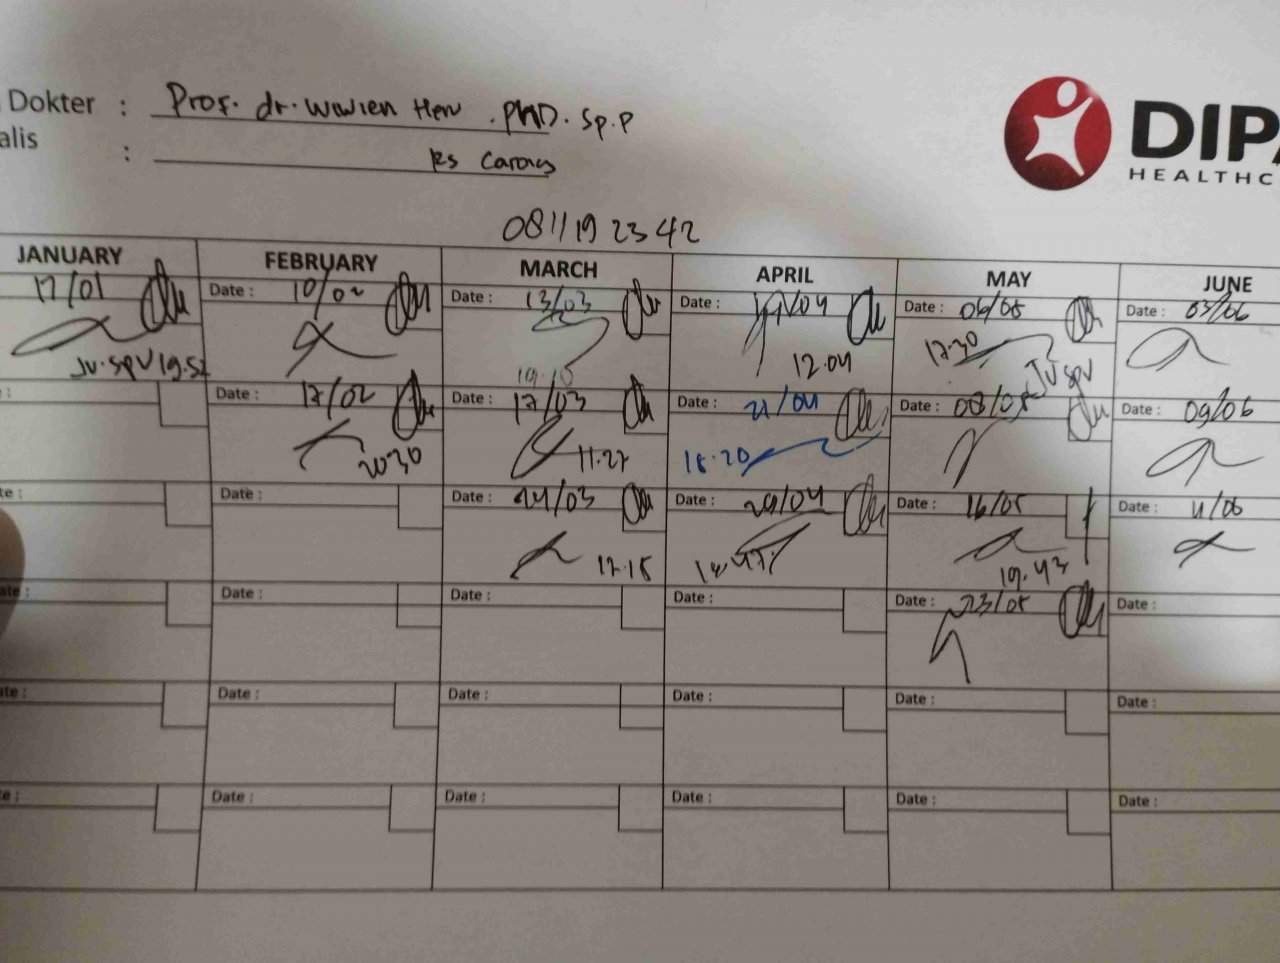 Dokter : Prof. dr. Wiwien Heru .PhD. Sp.P
alis : RS Carolus
DIPA
HEALTHC
0811 19 23 42
JANUARY FEBRUARY MARCH APRIL MAY JUNE
17/01 Date : 10/02 Date : 13/03 Date : Date : 06/05 Date : 03/06
Jv. spv 19.52 19.15 12.04 17.30 Jv spv
Date : 17/02 Date : 17/03 Date : 21/04 Date : 08/05 Date : 09/06
20.30 11.27 18.20
te : Date : Date : 24/03 Date : 29/04 Date : 16/05 Date : 11/06
17.15 18.47 19.43
ate : Date : Date : Date : Date : 23/05 Date :
ate : Date : Date : Date : Date : Date :
e : Date : Date : Date : Date : Date :